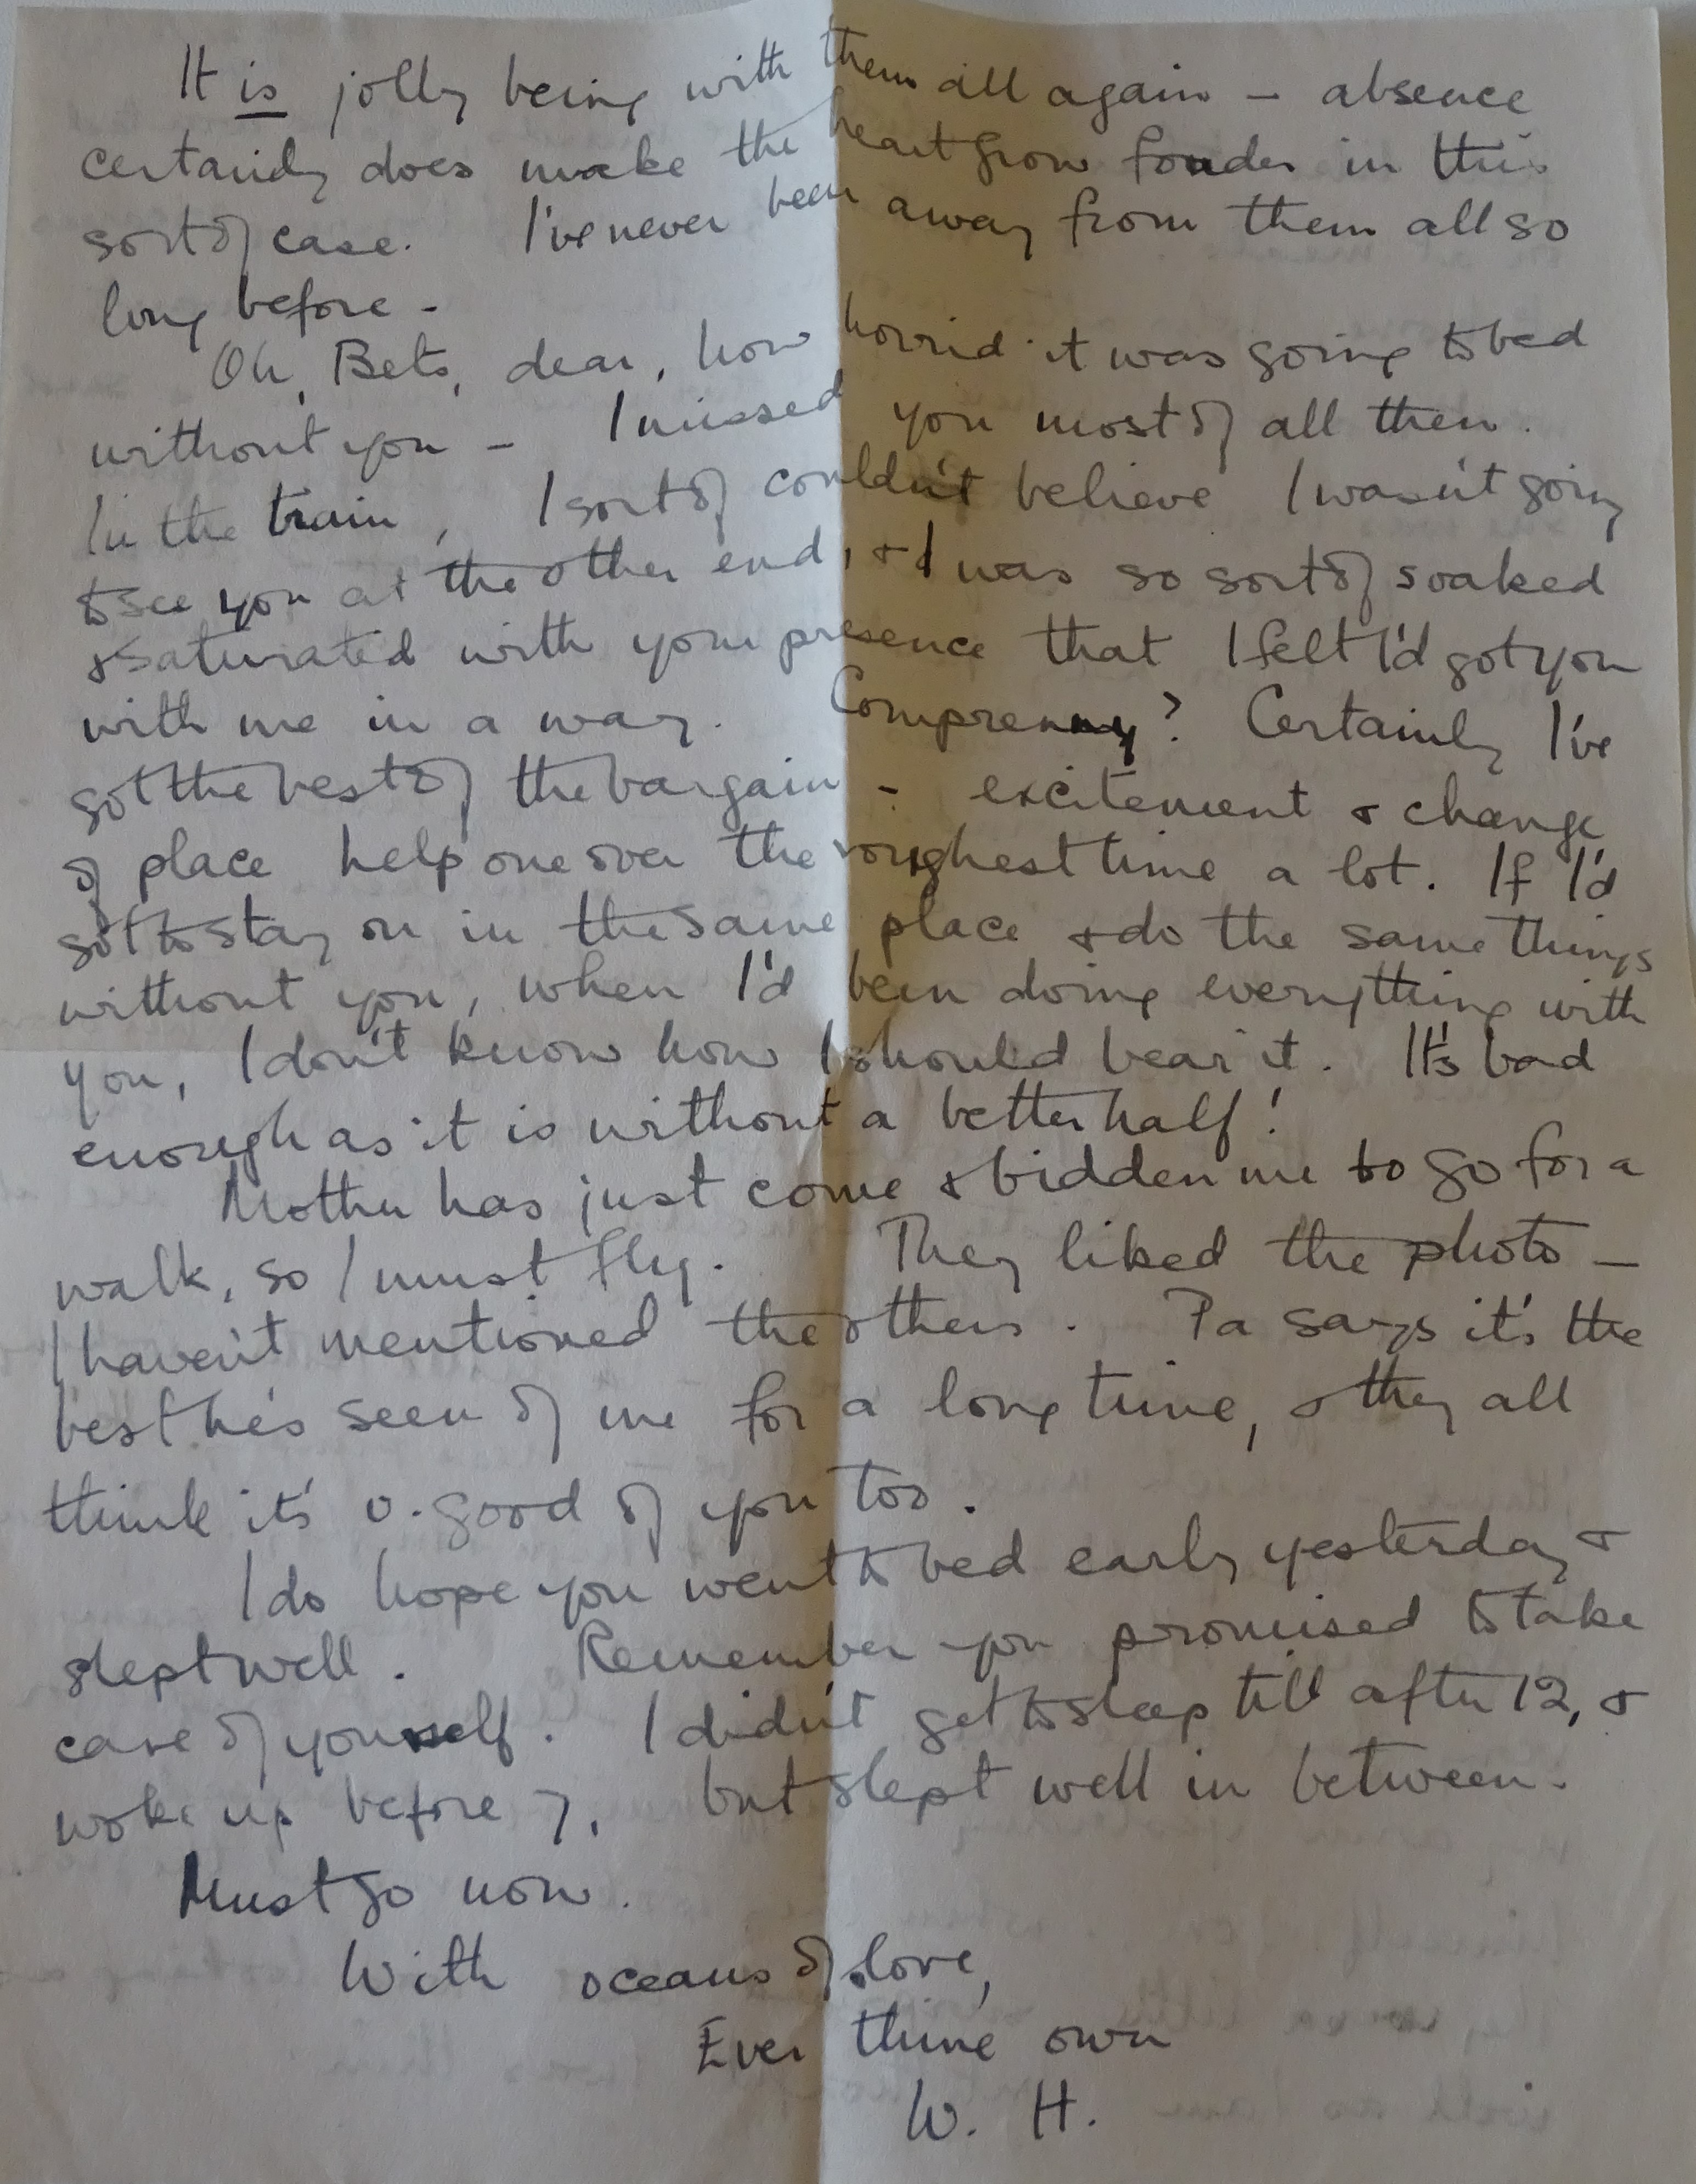 It is jolly being with them all again – absence
certainly does make the heart grow fonder in this
sort of case. I've never been away from them all so
long before –
Oh, Bets, dear, how horrid it was going to bed
without you – I missed you most of all then.
In the train, I sort of couldn't believe I wasn't going
to see you at the other end, & I was so sort of soaked
& saturated with your presence that I felt I'd got you
with me in a way. Comprenny? Certainly I've
got the best of the bargain – excitement & change
of place help one over the roughest time a lot. If I'd
got to stay on in the same place & do the same things
without you, when I'd been doing everything with
you, I don't know how I should bear it. It's bad
enough as it is without a better half!
Mother has just come & bidden me to go for a
walk, so I must fly. They liked the photo –
I haven't mentioned the others. Pa says it's the
best he's seen of me for a long time, & they all
think it's v. good of you too.
I do hope you went to bed early yesterday &
slept well. Remember you promised to take
care of yourself. I didn't get to sleep till after 12, &
woke up before 7, but slept well in between.
Must go now.
With oceans of love,
Ever thine own
W. H.